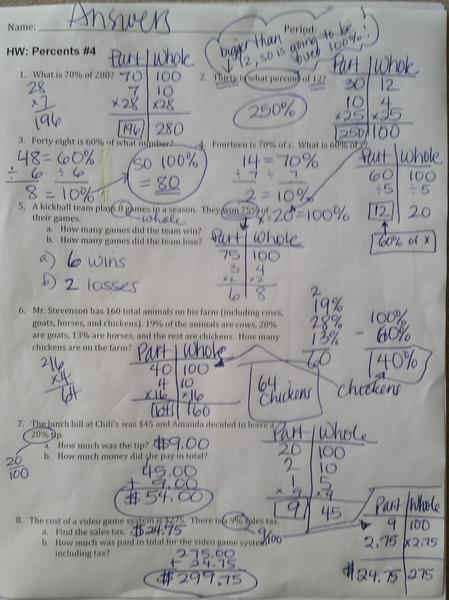 Name: Answers Period:
HW: Percents #4
bigger than
12, so is going to be
over 100%!
1. What is 70% of 280?
Part Whole
70 100
7 10
×28 ×28
196 280
28
×7
196
2. Thirty is what percent of 12?
250%
Part Whole
30 12
10 4
×25 ×25
250 100
3. Forty eight is 60% of what number?
48 = 60%
÷ 6 ÷ 6
8 = 10%
SO 100%
= 80
4. Fourteen is 70% of x. What is 60% of x?
14 = 70%
÷ 7 ÷ 7
2 = 10%
×20 = 100%
Part Whole
60 100
÷5 ÷5
12 20
60% of x
5. A kickball team plays 8 games in a season. They won 75% of
their games. whole
a. How many games did the team win?
b. How many games did the team lose?
a) 6 wins
b) 2 losses
Part Whole
75 100
3 4
×2 ×2
6 8
6. Mr. Stevenson has 160 total animals on his farm (including cows,
goats, horses, and chickens). 19% of the animals are cows, 28%
are goats, 13% are horses, and the rest are chickens. How many
chickens are on the farm?
Part Whole
40 100
4 10
×16 ×16
64 160
216
×4
64
64
Chickens
2
19%
28%
13%
60
100%
- 60%
40%
chickens
7. The lunch bill at Chili's was $45 and Amanda decided to leave a
20% tip.
20
100
a. How much was the tip? $9.00
b. How much money did she pay in total?
45.00
+ 9.00
$54.00
Part Whole
20 100
2 10
1 5
×9 ×9
9 45
8. The cost of a video game system is $275. There is a 9% sales tax.
9/100
a. Find the sales tax. $24.75
b. How much was paid in total for the video game system,
including tax?
275.00
+ 24.75
$299.75
Part Whole
9 100
2.75 ×2.75
$24.75 275